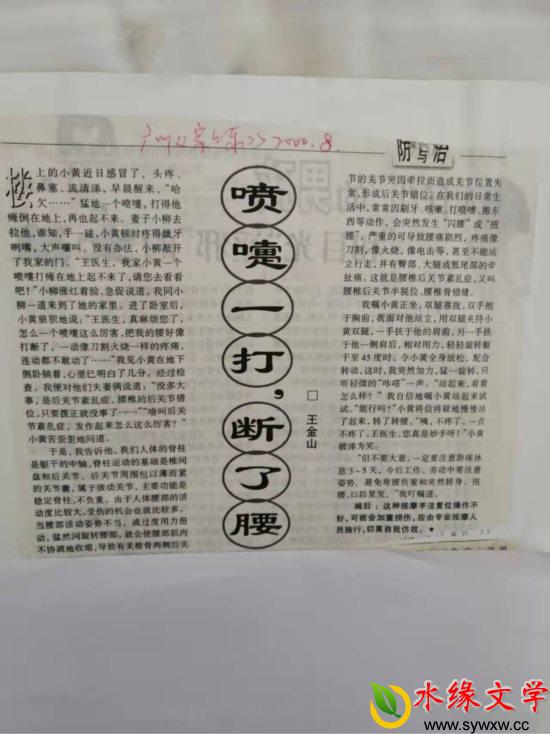 2000.8.
防与治
喷嚏一打,断了腰
□ 王金山
楼上的小黄近日感冒了，头疼、
鼻塞、流清涕，早晨醒来，“哈
欠……”猛地一个喷嚏，打得他
瘫倒在地上，再也起不来。妻子小柳去
拉他，谁知，手一碰，小黄顿时疼得龇牙
咧嘴，大声嚷叫。没有办法，小柳敲开
了我家的门。“王医生，我家小黄一个
喷嚏打瘫在地上起不来了，请您去看看
吧！”小柳涨红着脸，急促说道。我同小
柳一道来到了她的家里。进了卧室后，
小黄狼狈地说：“王医生，真麻烦您了，
怎么一个喷嚏这么厉害，把我的腰好像
打断了，一动像刀割火烧一样的疼痛，
连动都不敢动了……”我见小黄在地下
侧卧躺着，心里已明白了几分。经过检
查，我便对他们夫妻俩说道：“没多大
事，是后关节紊乱症，腰椎的后关节错
位，只要拨正就没事了……”“啥叫后关
节紊乱症，发作起来怎么这么厉害？”
小黄苦歪歪地问道。
于是，我告诉他，我们人体的脊柱
是躯干的中轴，脊柱运动的基础是椎间
盘和后关节。后关节周围包以薄而紧
的关节囊，属于微动关节，主要功能是
稳定脊柱，不负重。由于人体腰部的活
动度比较大，受伤的机会也就比较多。
当腰部活动姿势不当，或过度用力扭
动，猛然间旋转腰部，就会使腰部肌肉
不协调地收缩，导致有关椎骨两侧后关
节的关节突因牵拉而造成关节位置失
常，形成后关节错位。在我们的日常生
活中，常常因刷牙、咳嗽、打喷嚏、搬东
西等动作，会突然发生“闪腰”或“扭
腰”，严重的可导致腰痛剧烈，疼痛像
刀割，像火烧，像电击等，甚至不能站
立行走，并有臀部、大腿或骶尾部的牵
扯痛。这就是腰椎后关节紊乱症，又叫
腰椎后关节半脱位，腰椎骨错缝。
我嘱小黄正坐，双腿靠拢，双手抱
于胸前，我面对他站立，用双腿夹持小
黄双腿，一手扶于他的肩前，另一手扶
于他一侧肩后，相对用力，轻轻旋转躯
干至45度时，令小黄全身放松，配合
转动，这时，我突然加力，猛一旋转，只
听轻微的“咔嗒”一声。“站起来，看看
怎么样？”我自信地嘱小黄站起来试
试。“能行吗？”小黄将信将疑地慢慢站
了起来，转了转腰，“咦，不疼了，一点
不疼了，王医生，您真是妙手呀！”小黄
破涕为笑。
“但不要大意，一定要注意卧床休
息3－5天，今后工作、劳动中要注意
姿势，避免弯腰负重和突然转身、扭
腰，以防复发。”我叮嘱道。
编后：这种按摩手法复位操作不
好，可能会加重损伤，应由专业按摩人
员施行，切莫自我仿效。★
水缘文学
www.sywxw.cc